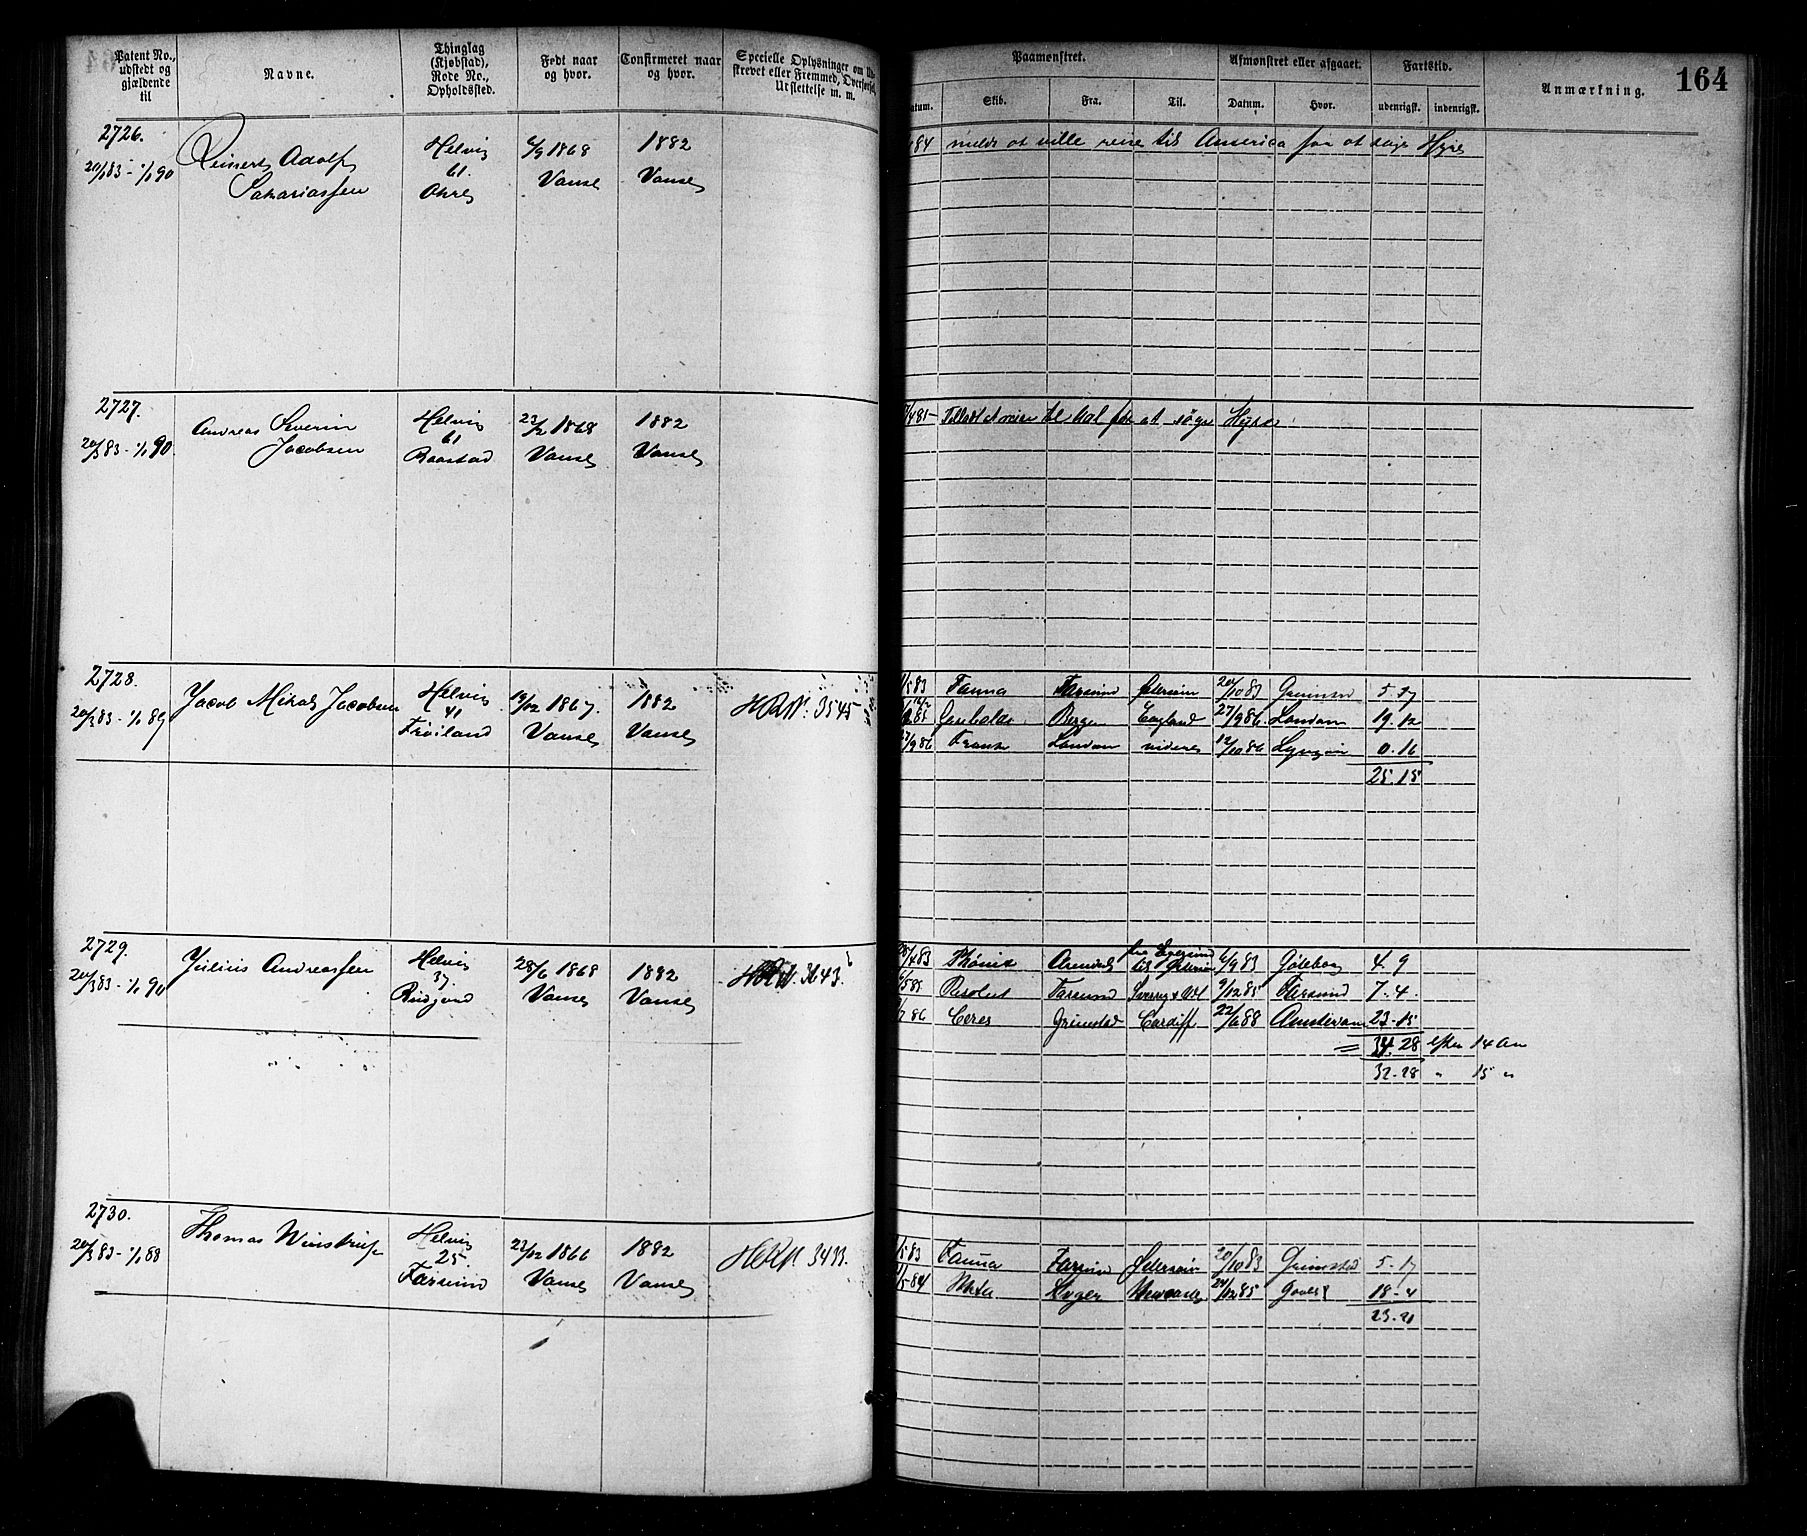 Patent No., udstedt og gjældende til
Navne.
Thinglag (Kjøbstad), Rode No., Opholdssted.
Født naar og hvor.
Confirmeret naar og hvor.
Specielle Oplysninger om Ud-
skrevet eller Fremmed, Overførsel,
Udslettelse m. m.
Paamønstret.
Afmønstret eller afgaaet.
Fartstid.
Anmærkning.
164
Datum.
Skib.
Fra.
Til.
Datum.
Hvor.
udenrigsk.
indenrigsk.
2726.
20/3 83 - 1/1 90
Reinert Adolf
Sakariassen
Helvig
61.
Ohre
6/9 1868
Vanse
1882
Vanse
84 meldt at ville reise til America for at søge Hyre
2727.
20/3 83 - 1/1 90
Andreas Severin
Jacobsen
Helvig
61
Raastad
22/2 1868
Vanse
1882
Vanse
485 - Tilladt at reise til for at søge Hyre
2728.
20/3 83 - 1/1 89
Jacob Mikal Jacobsen
Helvig
41
Frøiland
19/12 1867.
Vanse
1882
Vanse
3545
5 83 Fauna Farsund 20/10 83 Grimstad 5. 17
85 Berge England 27/9 86 London 19. 12
27/9 86 London videre 12/10 86 Lyngør 0. 16
25. 15
2729.
20/3 83 - 1/1 90
Julius Andreassen
Helvig
37.
28/6 1868
Vanse
1882
Vanse
3643.
4 83 Fønix Arendal 6/9 83 Gøteborg 4. 9
5 85 Resolut Farsund 9/12 85 7. 4.
7 86 Ceres Grimstad Cardiff 22/6 88 Amsterdam 23. 15
= 34. 28 efter 14 Aar
32. 28 " 15 "
2730.
20/3 83 - 1/1 88
Thomas Winstrup
Helvig
25.
Farsund
22/12 1866
Vanse
1882
Vanse
3433.
5 83 Fauna Farsund 20/10 83 Grimstad 5. 17
5 84 24/12 85 18 - 4
23. 21